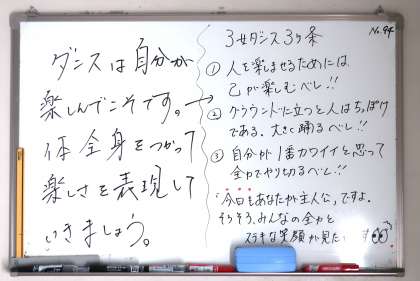 ダンスは自分が
楽しんでこそです。→
体全身をつかって
楽しさを表現して
いきましょう。
No.94
3女ダンス3ヶ条
① 人を楽しませるためには
己が楽しむべし!!
② グラウンドに立つと人はちっぽけ
である。大きく踊るべし!!
③ 自分が1番カワイイと思って
全力でやり切るべし!!
「今日もあなたが主人公」ですよ。
そろそろ、みんなの全力と
ステキな笑顔が見たい